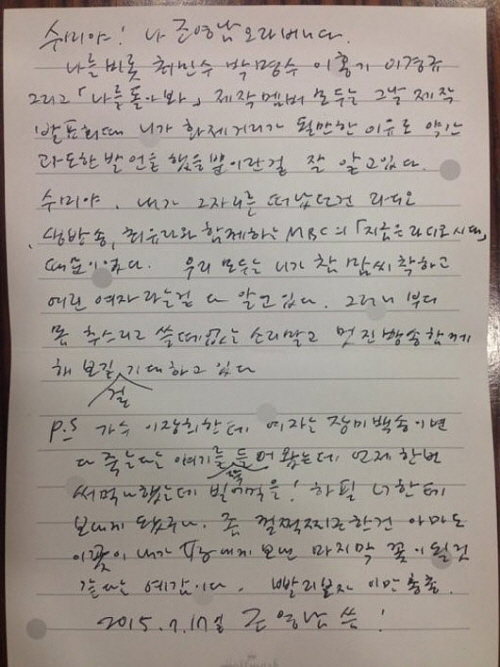 수미야! 나 조영남 오라버니다.
나를비롯 최민수 박명수 이홍기 이경규
그리고「나를돌아봐」제작멤버 모두는 그날 제작
발표회때 니가 화제거리가 될만한 이유로 약간
과도한 발언을 했을뿐이란걸 잘 알고있다.
수미야, 내가 그자리를 떠났던건 라디오
생방송, 최유라와 함께하는 MBC의「지금은 라디오 시대」
때문이었다. 우리 모두는 니가 참 맘씨 착하고
여린 여자라는걸 다 알고있다. 그러니 부디
몸 추스리고 쓸떼없는 소리말고 멋진방송 함께
해 보길 기대하고 있다
걸
P.S 가수 이장희한테 여자는 장미백송이면
다 죽는다는 얘기를 들어 왔는데 언제 한번
써먹나했는데 빌어먹을! 하필 너한테
보내게 됐구나. 좀 껄쩍찌근한건 아마도
이꽃이 내가 여자에게 보낸 마지막 꽃이될것
같다는 예감이다. 빨리보자 이만 총총.
2015.7.17일 조영남 씀!